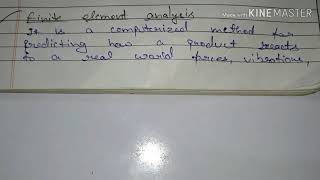 Made with KINEMASTER
finite element analysis
It is a computerized method for
predicting how a product reacts
to a real world forces, vibrations,